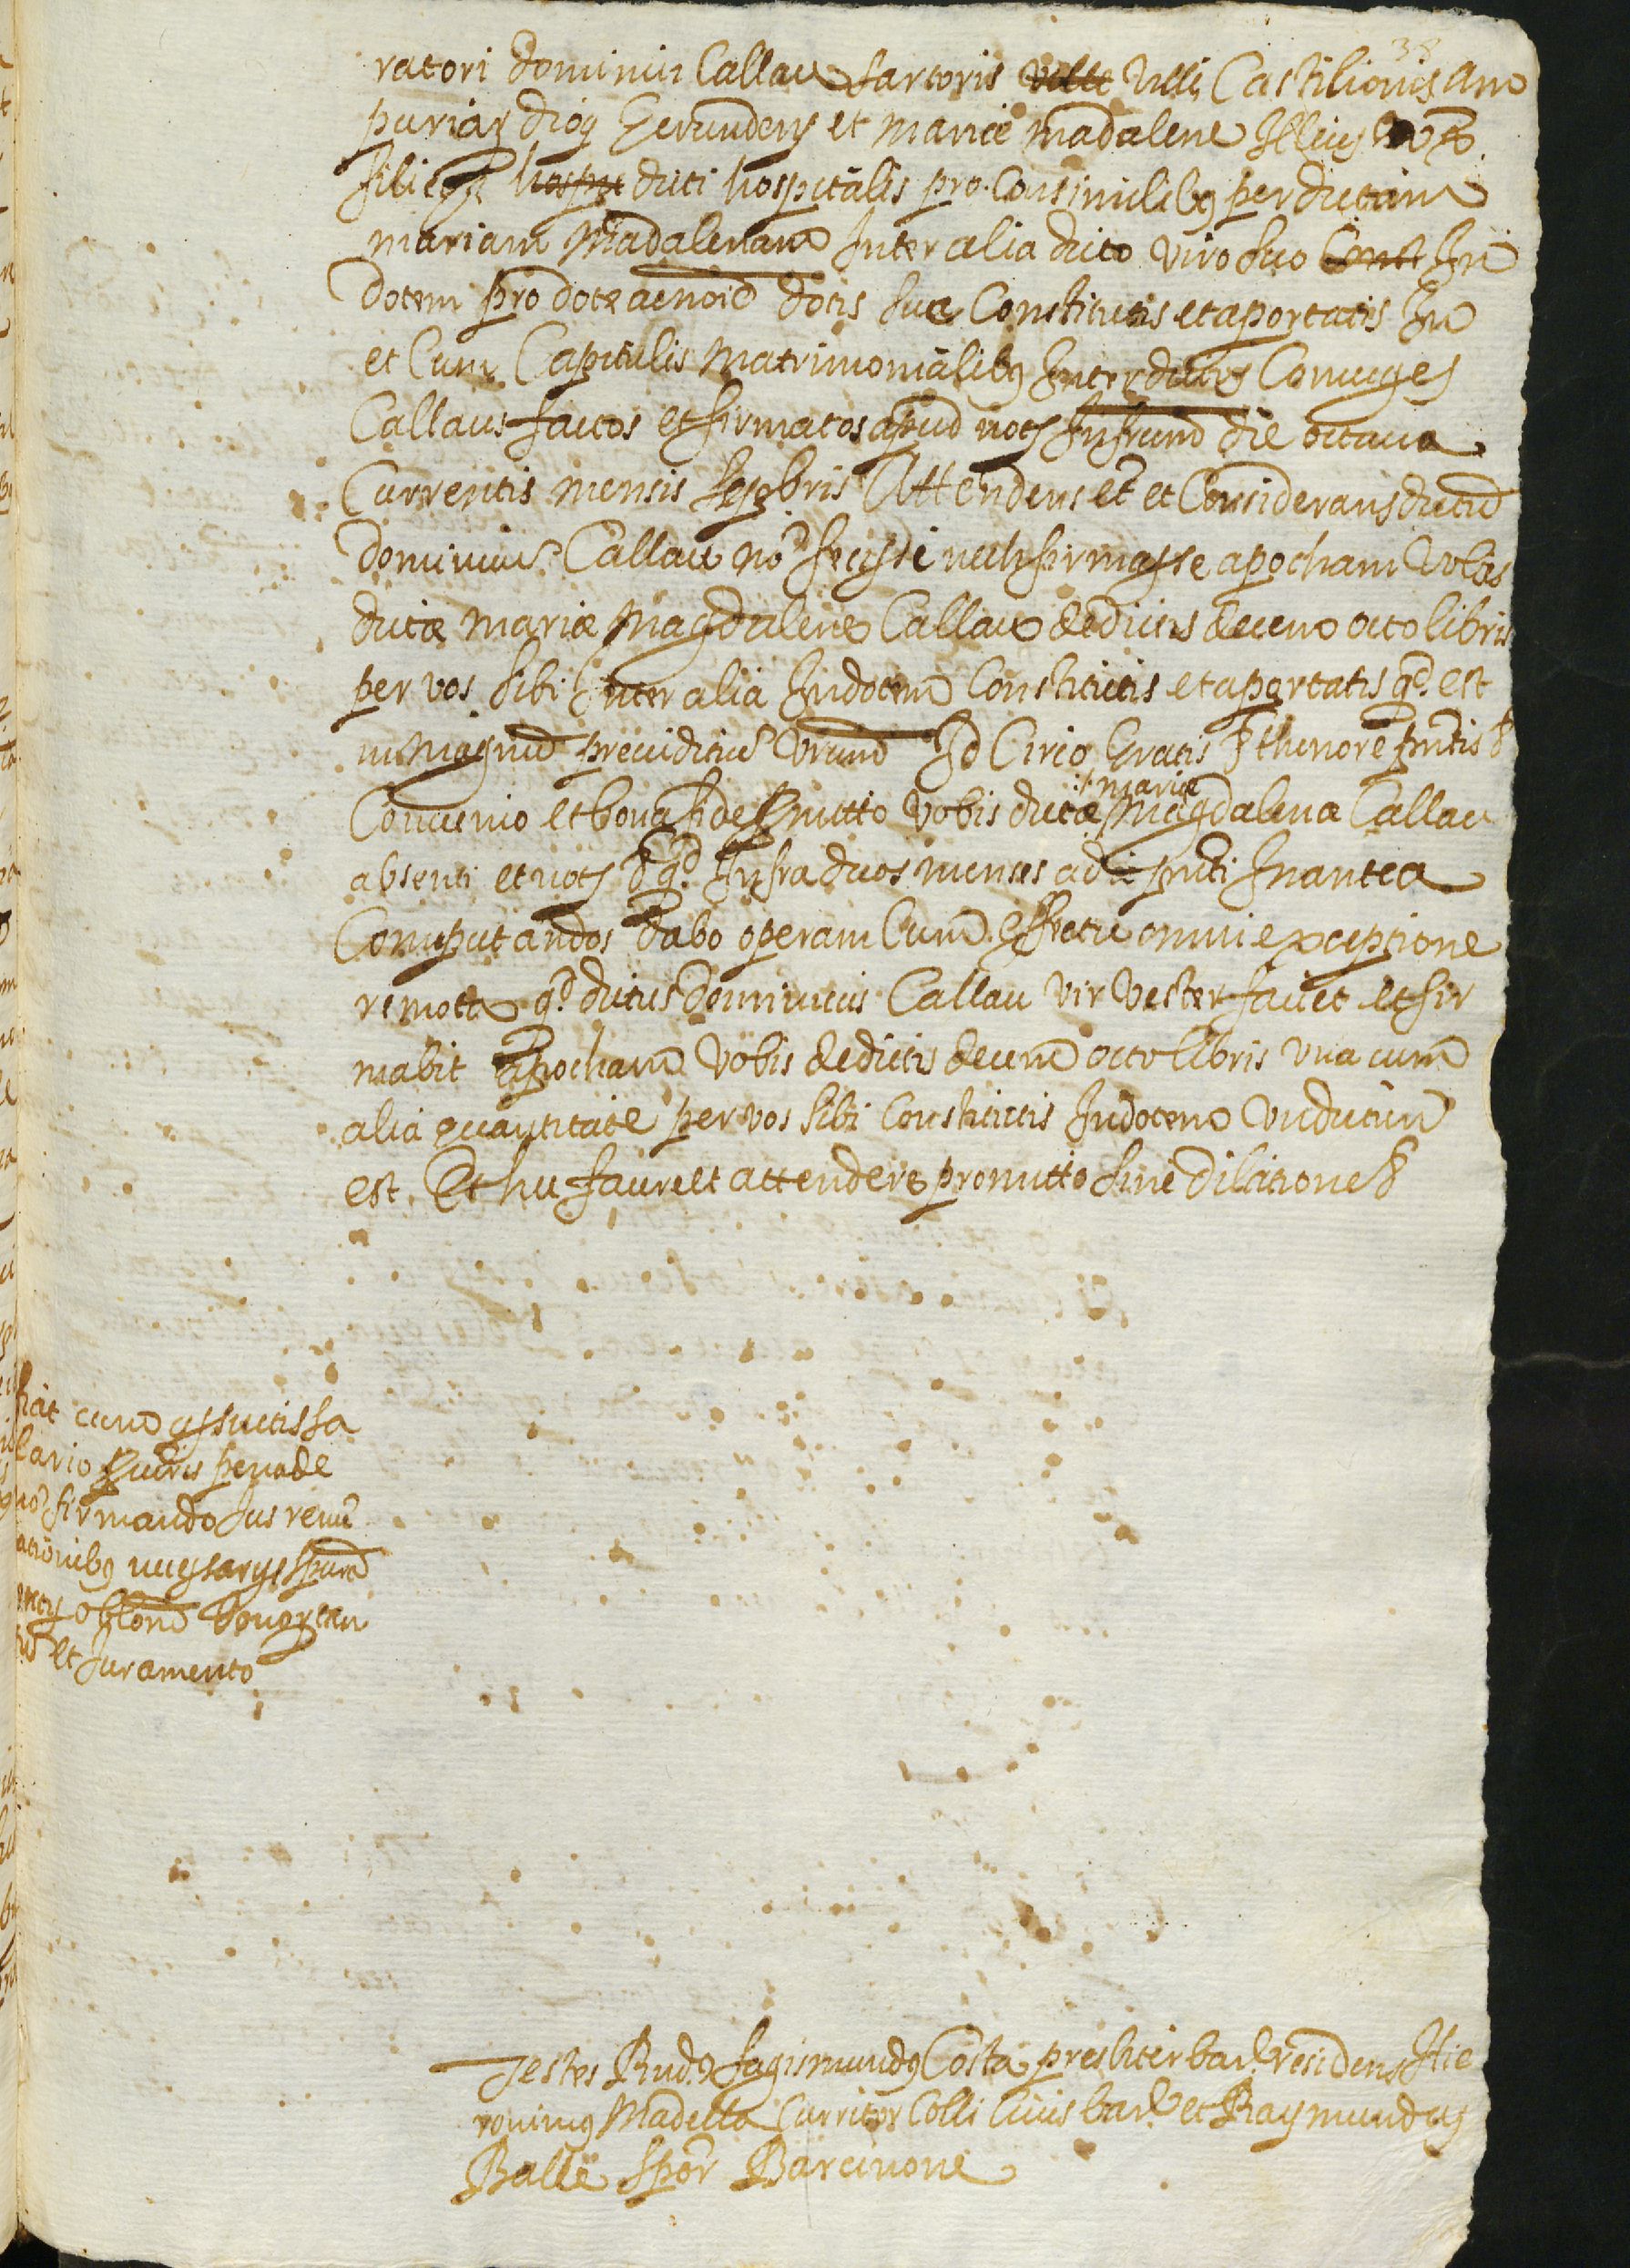 38
ratori dominici Callau sartoris ville ville Castilionis Im
puriaꝝ dioc̄ Gerundeñ et marie madalene Illius uxo
filie hospi dicti hospitalis pro Consimilibꝯ per dictam
mariam Madalenam Inter alia dicto viro suo Const In
dotem pro dote ac noīe dotis sue Constitutis et aportatis In
et Cum Capitulis matrimonialibꝯ Inter dictos Coniuges
Callaus factos et firmatos apud notm Infrum die octaua
Currentis mensis sepbris Attendens et et Considerans dictū
dominicū Callau no fecisse nech firmasse apocham vobis
dictæ mariæ Magdalene Callau de dictis decem octo libris
per vos sibi Inter alia In dotem Constitutis et aportatis qd est
in magnū preiuditiū vrum Id Circo Gratis thenore pntis
:/: marie
Conuenio et bona fide promitto vobis dictæ Magdalena Callau
absenti et not qd Infra duos menses a die pnti Inantea
Computandos dabo operam Cum effectu omni exceptione
remota qd dictus dominicus Callau vir vester faciet et fir
mabit apocham vobis de dictis decem octo libris vna cum
alia quantitate per vos sibi Constitutis In dotem vt dictum
est Et hec facere et attendere promitto sine dilatione
fiat cum assuetis sa
lario pena de
no firmando Ius renū
ationibꝯ necessarys
oblone bonoꝝ
et Iuramento
Testes Rnds Sagismundꝯ Costa presbiter bar residens Hie
ronimꝯ Madella Curritor Colli Ciuis bar et Raymundus
Balle spor Barcinone